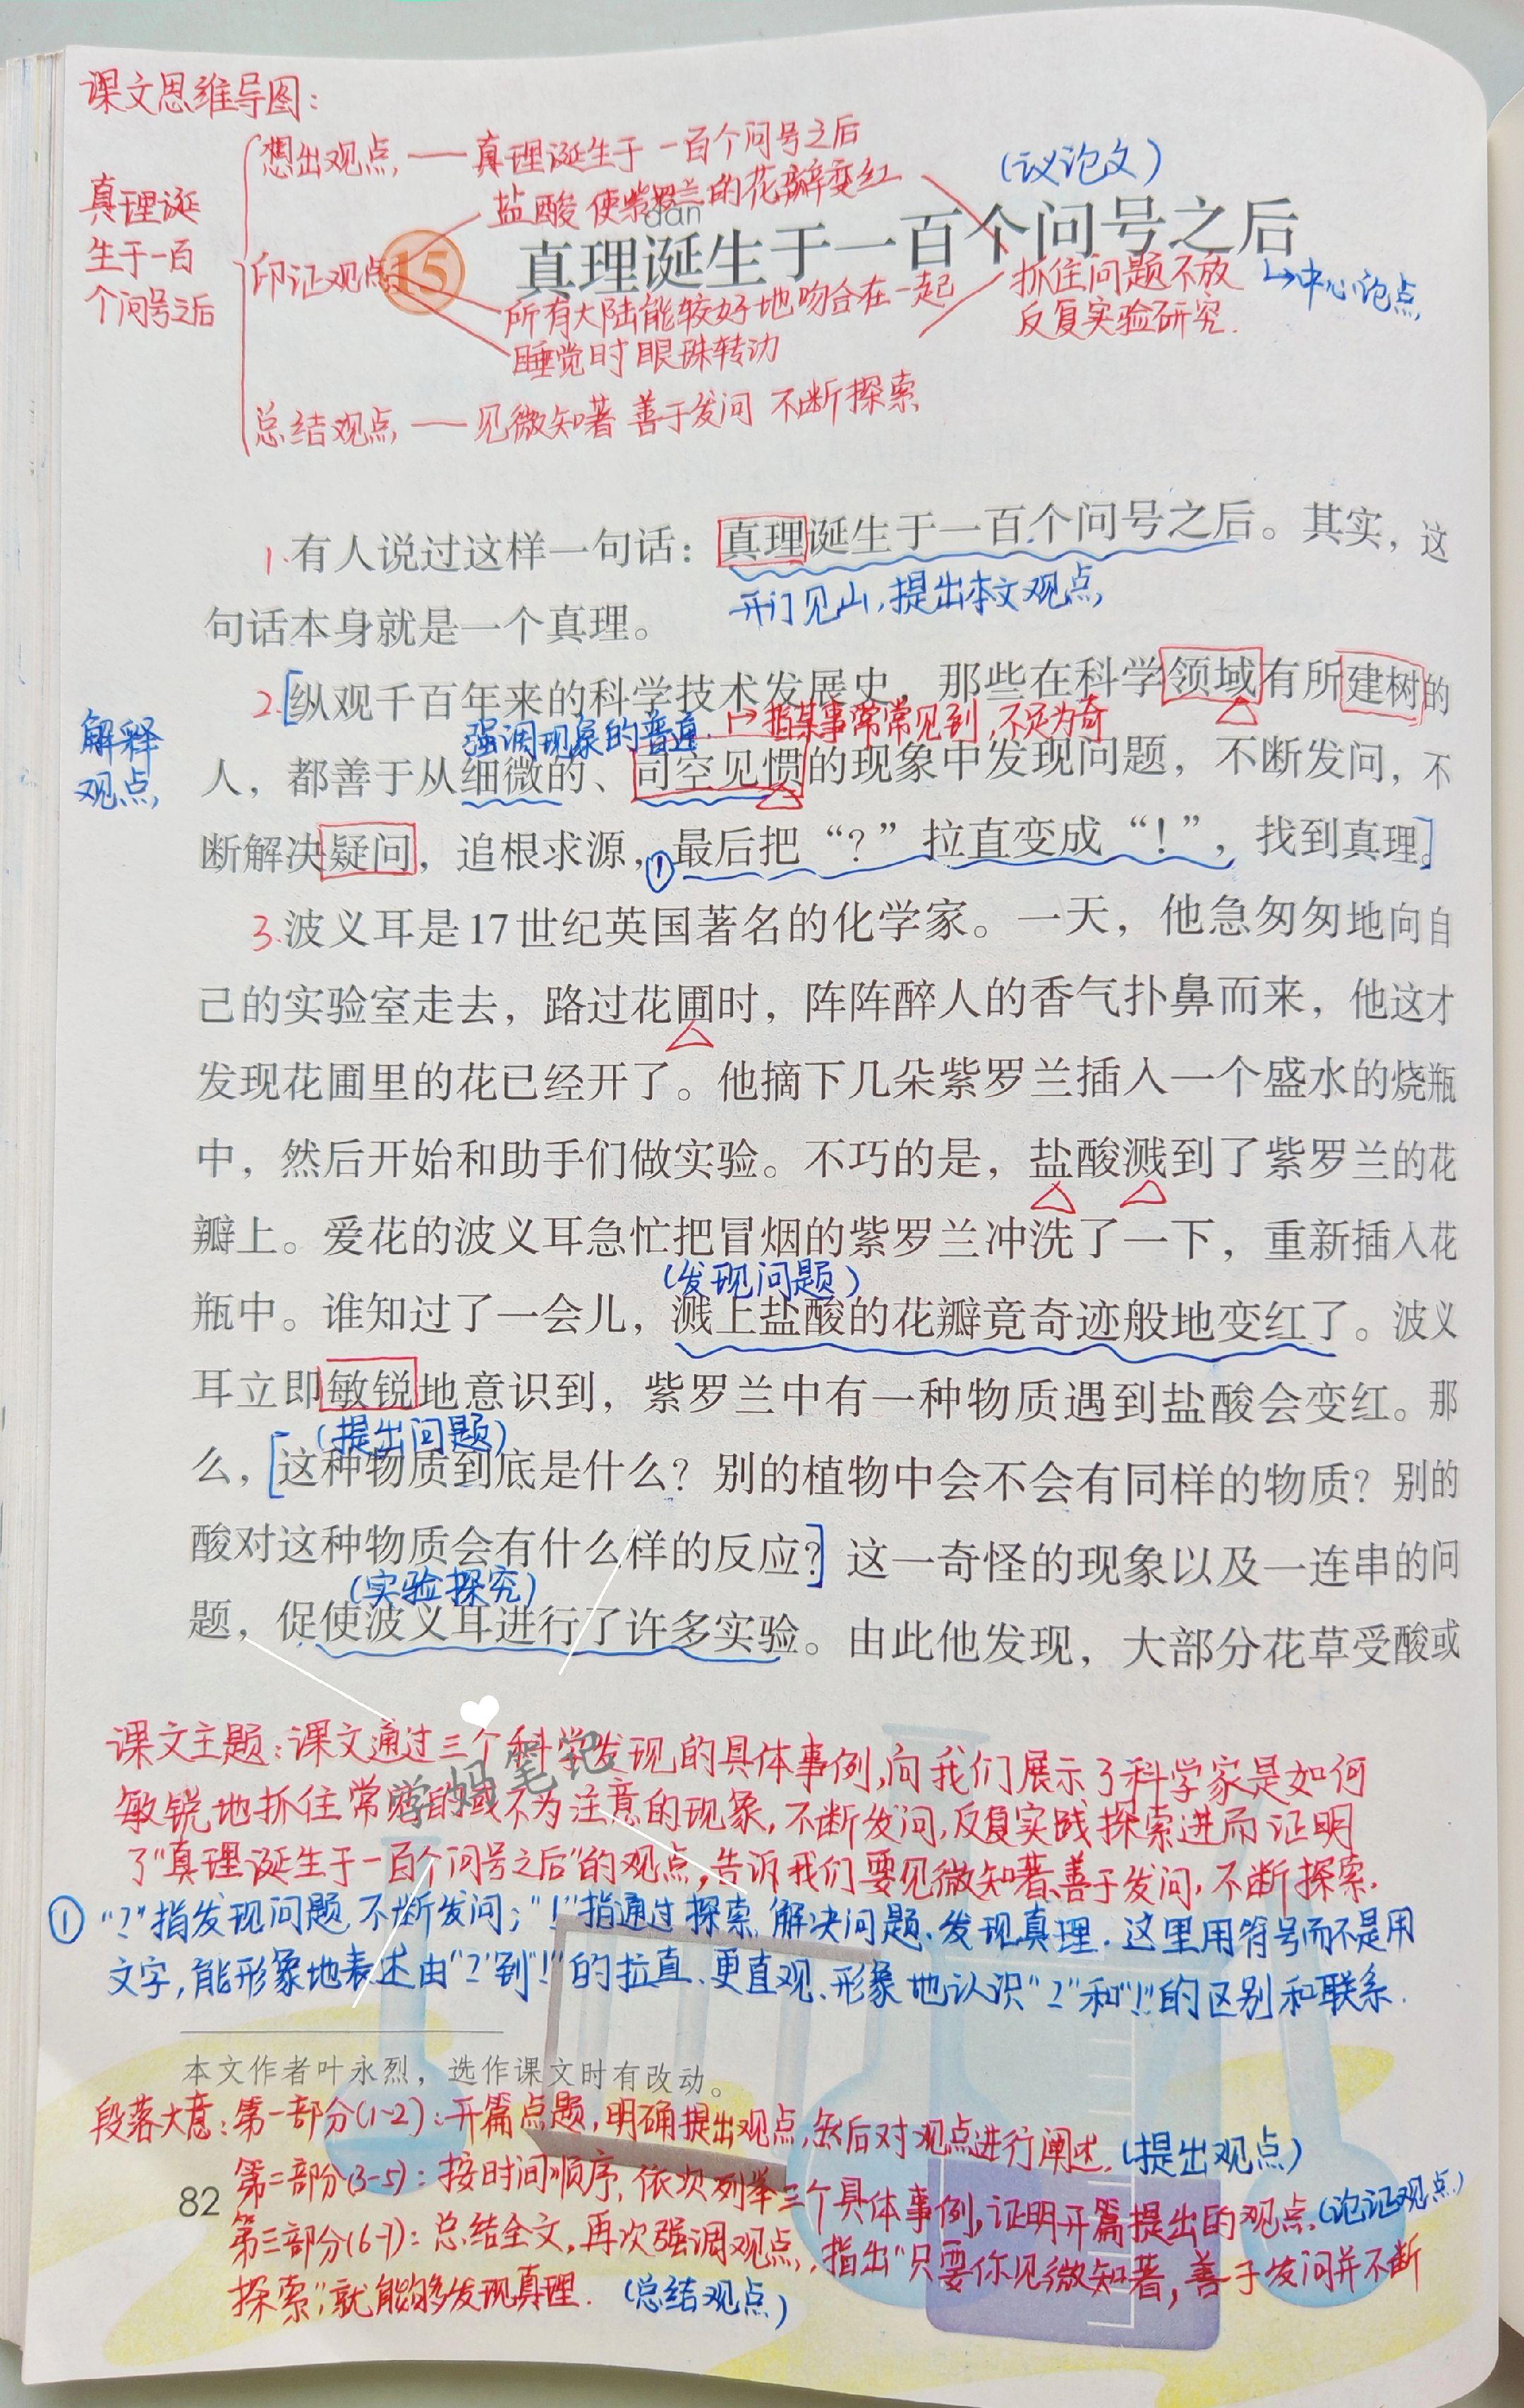 课文思维导图:
真理诞
生于一百
个问号之后
想出观点 — 真理诞生于一百个问号之后
(议论文)
盐酸使紫罗兰的花瓣变红
dàn
15 真理诞生于一百个问号之后
印证观点
所有大陆能较好地吻合在一起
睡觉时眼珠转动
抓住问题不放
反复实验研究.
↳中心论点
总结观点 — 见微知著 善于发问 不断探索
1.有人说过这样一句话：真理诞生于一百个问号之后。其实，这
开门见山,提出本文观点
句话本身就是一个真理。
2.[纵观千百年来的科学技术发展史，那些在科学领域有所建树的
解释
观点
强调现象的普通.
↦指某事常常见到,不足为奇
人，都善于从细微的、司空见惯的现象中发现问题，不断发问，不
断解决疑问，追根求源，①最后把“？”拉直变成“！”，找到真理。]
3.波义耳是17世纪英国著名的化学家。一天，他急匆匆地向自
己的实验室走去，路过花圃时，阵阵醉人的香气扑鼻而来，他这才
发现花圃里的花已经开了。他摘下几朵紫罗兰插入一个盛水的烧瓶
中，然后开始和助手们做实验。不巧的是，盐酸溅到了紫罗兰的花
瓣上。爱花的波义耳急忙把冒烟的紫罗兰冲洗了一下，重新插入花
(发现问题)
瓶中。谁知过了一会儿，溅上盐酸的花瓣竟奇迹般地变红了。波义
耳立即敏锐地意识到，紫罗兰中有一种物质遇到盐酸会变红。那
(提出问题)
么，[这种物质到底是什么？别的植物中会不会有同样的物质？别的
酸对这种物质会有什么样的反应？]这一奇怪的现象以及一连串的问
(实验探究)
题，促使波义耳进行了许多实验。由此他发现，大部分花草受酸或
课文主题:课文通过三个科学发现的具体事例,向我们展示了科学家是如何
学妈笔记
敏锐地抓住常见的或不为注意的现象,不断发问,反复实践探索进而证明
了“真理诞生于一百个问号之后”的观点,告诉我们要见微知著、善于发问,不断探索.
① “?”指发现问题,不断发问;“!”指通过探索,解决问题、发现真理.这里用符号而不是用
文字,能形象地表述由“?”到“!”的拉直、更直观、形象地认识“?”和“!”的区别和联系.
本文作者叶永烈，选作课文时有改动。
段落大意:第一部分(1~2):开篇点题,明确提出观点,然后对观点进行阐述.(提出观点)
第二部分(3-5):按时间顺序,依次列举三个具体事例,证明开篇提出的观点.(论证观点)
82
第三部分(6-7):总结全文,再次强调观点,指出“只要你见微知著,善于发问并不断
探索”,就能够发现真理. (总结观点)